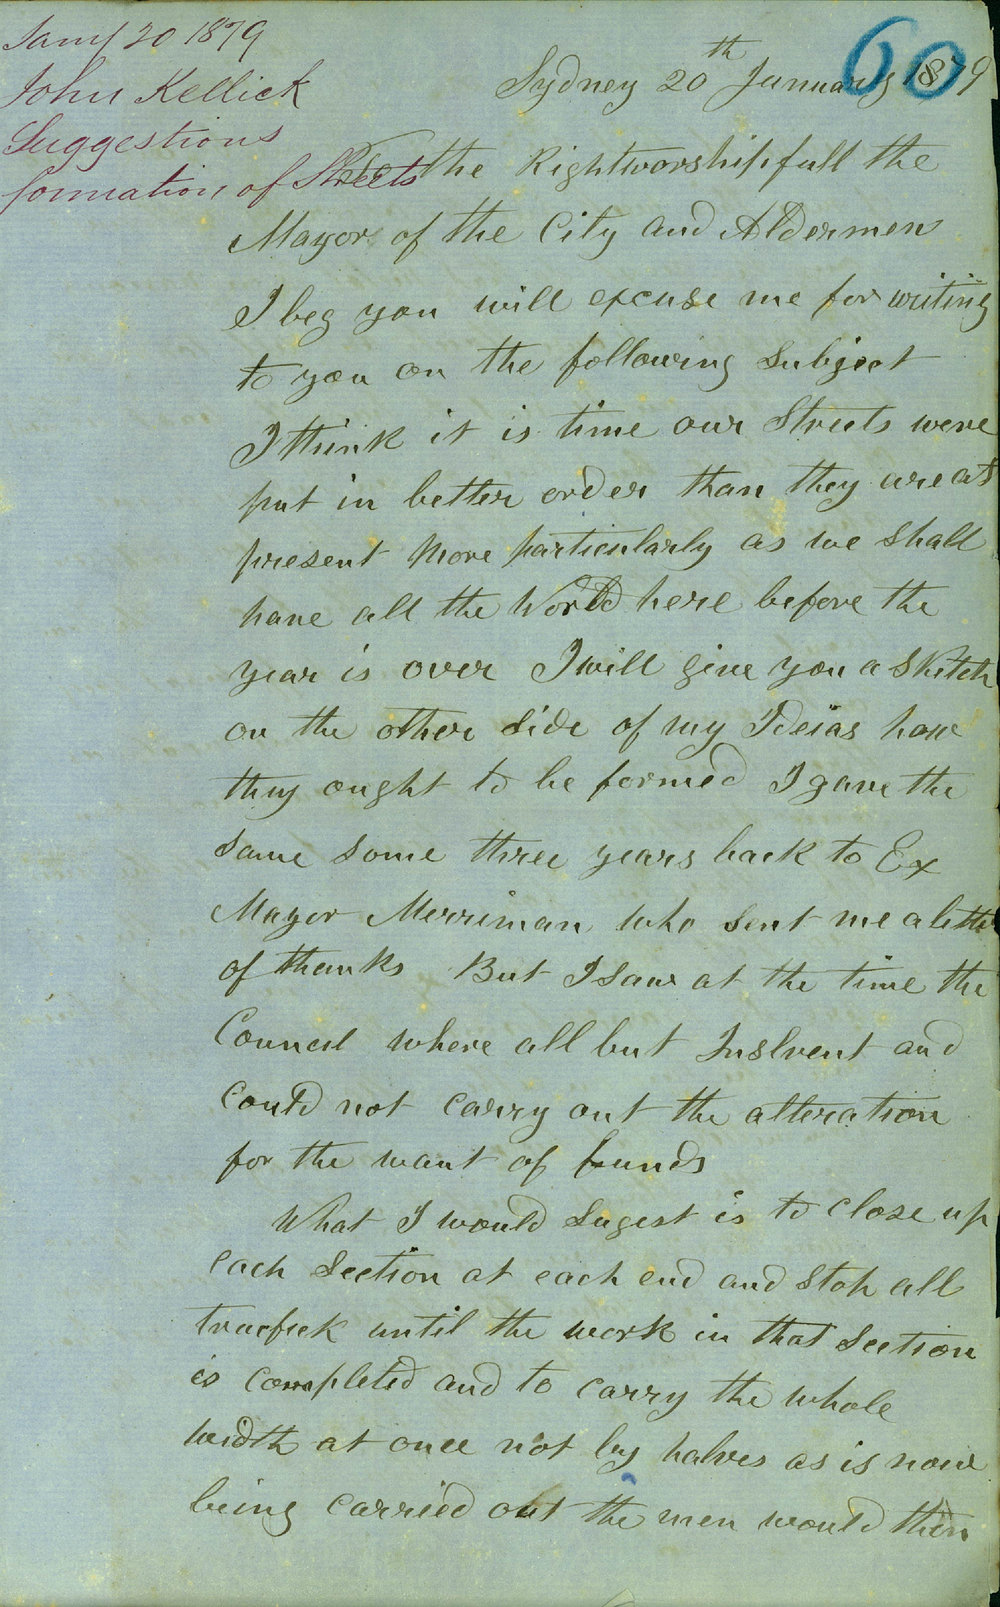 Jany 20 1879
John Kellick
Suggestions
formation of Streets
60
Sydney 20th January 1879
To the Rightworshipfull the
Mayor of the City and Aldermen
I beg you will excuse me for writing
to you on the following Subject
I think it is time our Streets were
put in better order than they are at
present More particularly as we shall
have all the World here before the
year is over I will give you a Sketch
on the other side of my Ideias how
they ought to be formed I gave the
same some three years back to Ex
Mayor Merriman who sent me a letter
of thanks But I saw at the time the
Council where all but Inslvent and
could not carry out the alteration
for the want of funds
What I would Sugest is to close up
each Section at each end and stop all
traefick until the work in that Section
is completed and to carry the whole
width at once not by halves as is now
being carried out the men would then